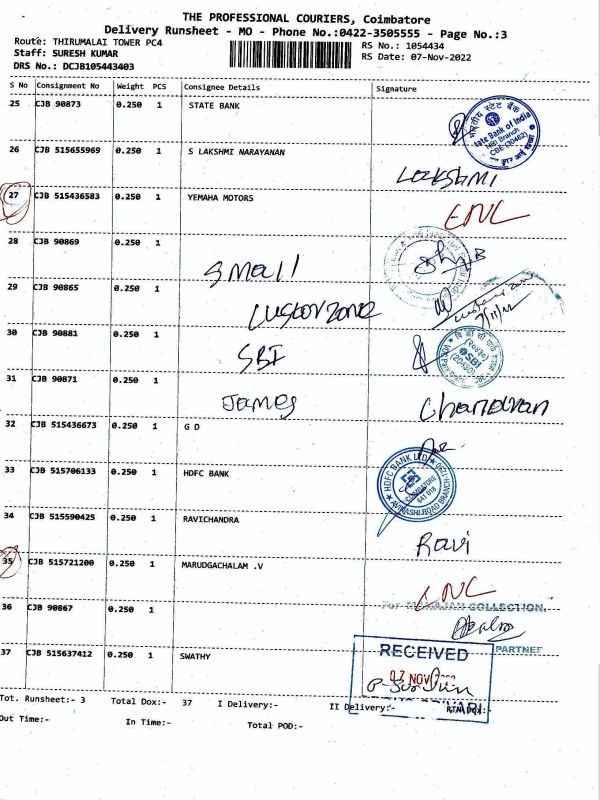 THE PROFESSIONAL COURIERS, Coimbatore
Delivery Runsheet - MO - Phone No.:0422-3505555 - Page No.:3
Route: THIRUMALAI TOWER PC4
Staff: SURESH KUMAR
DRS No.: DCJB105443403
RS No.: 1054434
RS Date: 07-Nov-2022
S No Consignment No Weight PCS Consignee Details Signature
25 CJB 90873 0.250 1 STATE BANK
भारतीय स्टेट बैंक
State Bank of India
CBE (30462)
26 CJB 515655969 0.250 1 S LAKSHMI NARAYANAN
27 CJB 515436583 0.250 1 YEMAHA MOTORS ENC
28 CJB 90869 0.250 1 Small
29 CJB 90865 0.250 1 7/11/22
30 CJB 90881 0.250 1 SBI
SBI
31 CJB 90871 0.250 1 James
32 CJB 515436673 0.250 1 G D
33 CJB 515706133 0.250 1 HDFC BANK
HDFC BANK LTD
COIMBATORE
641 018
AVINASHI ROAD BRANCH
34 CJB 515590425 0.250 1 RAVICHANDRA Ravi
35 CJB 515721200 0.250 1 MARUDGACHALAM .V ENC
For MAHAJAN COLLECTION,
36 CJB 90867 0.250 1
PARTNER
RECEIVED
37 CJB 515637412 0.250 1 SWATHY
07 NOV
Tot. Runsheet:- 3 Total Dox:- 37 I Delivery:- II Delivery:- RTN Dox:-
Out Time:- In Time:- Total POD:-